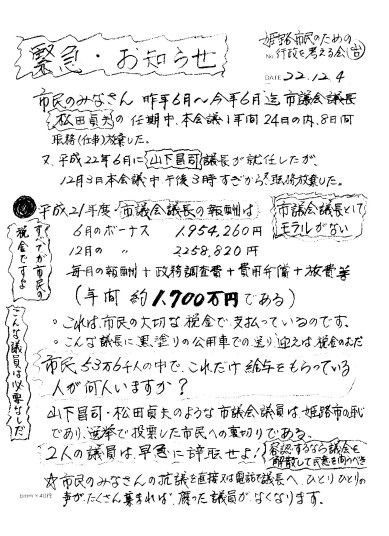 緊急・お知らせ
姫路市民のための
No. 行政を考える会
DATE 22.12.4
市民のみなさん 昨年6月〜今年6月迄 市議会議長
松田貞夫の任期中、本会議1年間24日の内、8日間
職務(仕事)放棄した。
又、平成22年6月に山下昌司議長が就任したが、
12月3日本会議中午後3時すぎから又職務放棄した。
平成21年度・市議会議長の報酬は
6月のボーナス 1,954,260円
12月の 〃 2258,820円
毎月の報酬+政務調査費+費用弁償+旅費等
(年間約1,700万円である)
市議会議長として
モラルがない
すべてが市民の
税金ですよ
こんな議員は必要なしだ
。これは、市民の大切な税金で支払っているのです。
。こんな議長に黒塗りの公用車での送り迎えは税金のむだ
市民、53万6千人の中で、これだけ給与をもらっている
人が何人いますか?
山下昌司・松田貞夫のような市議会議員は姫路市の恥
であり、選挙で投票した市民への裏切りである。
2人の議員は早急に辞職せよ!
容認するなら議会を
解散して民意を問うべき
☆市民のみなさんの抗議を直接又は電話で議長へ ひとりひとりの
声がたくさん集まれば、腐った議員がなくなります。
6mm×40行